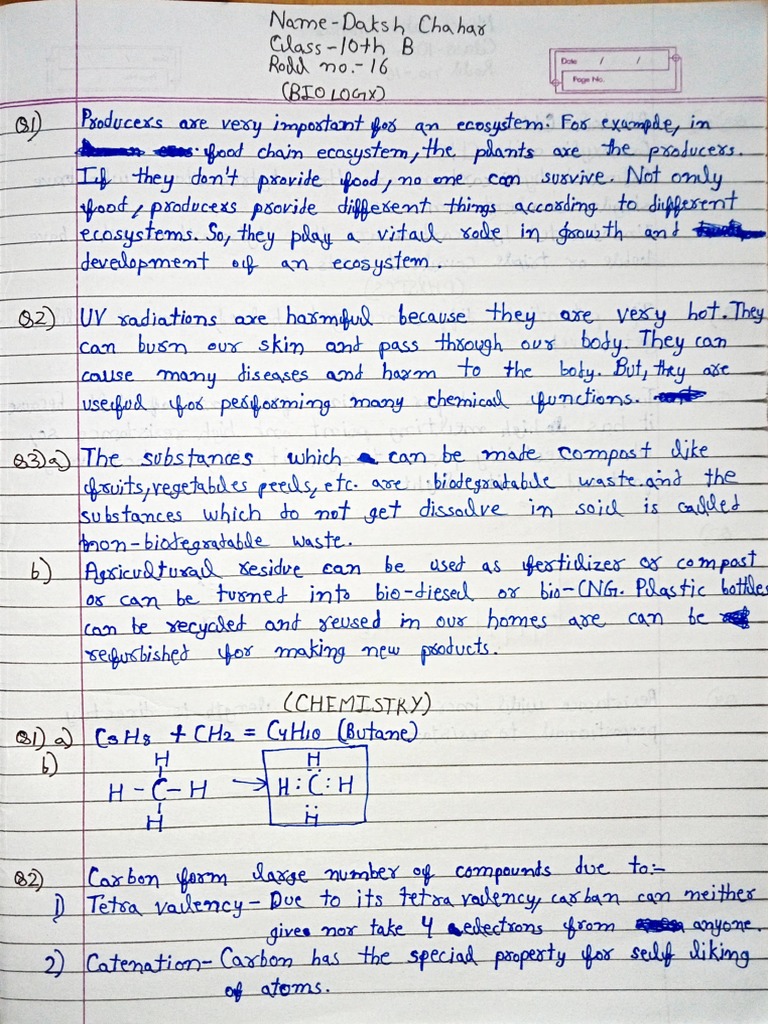 Name-Daksh Chahar
Class-10th B
Roll no.-16
(BIOLOGY)
Date / /
Page No.
Q1) Producers are very important for an ecosystem. For example, in
food chain ecosystem, the plants are the producers.
If they don't provide food, no one can survive. Not only
food, producers provide different things according to different
ecosystems. So, they play a vital role in growth and
development of an ecosystem.
Q2) UV radiations are harmful because they are very hot. They
can burn our skin and pass through our body. They can
cause many diseases and harm to the body. But, they are
useful for performing many chemical functions.
Q3) a) The substances which can be made compost like
fruits, vegetables peels, etc. are biodegradable waste. and the
substances which do not get dissolve in soil is called
non-biodegradable waste.
b) Agricultural residue can be used as fertilizer or compost
or can be turned into bio-diesel or bio-CNG. Plastic bottles
can be recycled and reused in our homes are can be
refurbished for making new products.
(CHEMISTRY)
Q1) a) C3H8 + CH2 = C4H10 (Butane)
b)
H
H - C - H → H : C : H
H
H
H
Q2) Carbon form large number of compounds due to:-
1) Tetra valency - Due to its tetra valency, carban can neither
give nor take 4 electrons from anyone.
2) Catenation - Carbon has the special property for self liking
of atoms.